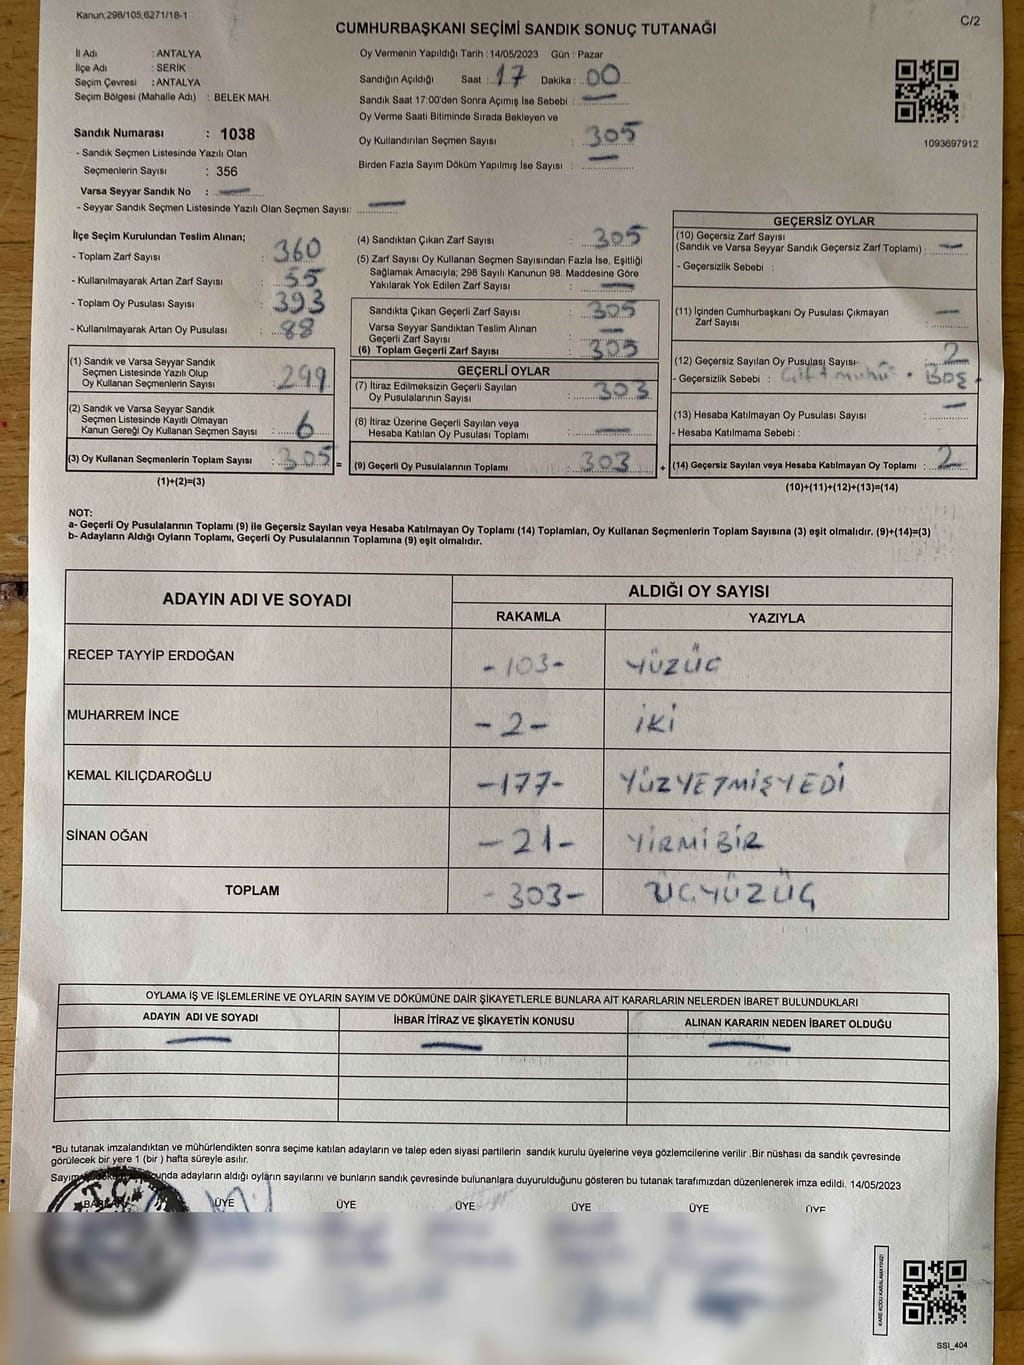 Kanun;298/105,6271/18-1
C/2
CUMHURBAŞKANI SEÇİMİ SANDIK SONUÇ TUTANAĞI
İl Adı : ANTALYA
İlçe Adı : SERİK
Seçim Çevresi : ANTALYA
Seçim Bölgesi (Mahalle Adı) : BELEK MAH.
Sandık Numarası : 1038
- Sandık Seçmen Listesinde Yazılı Olan
Seçmenlerin Sayısı : 356
Varsa Seyyar Sandık No : —
- Seyyar Sandık Seçmen Listesinde Yazılı Olan Seçmen Sayısı: —
Oy Vermenin Yapıldığı Tarih : 14/05/2023 Gün : Pazar
Sandığın Açıldığı Saat : 17 Dakika : 00
Sandık Saat 17:00'den Sonra Açımış İse Sebebi : —
Oy Verme Saati Bitiminde Sırada Bekleyen ve
Oy Kullandırılan Seçmen Sayısı : 305
Birden Fazla Sayım Döküm Yapılmış İse Sayısı : —
1093697912
İlçe Seçim Kurulundan Teslim Alınan;
- Toplam Zarf Sayısı : 360
- Kullanılmayarak Artan Zarf Sayısı : 55
- Toplam Oy Pusulası Sayısı : 393
- Kullanılmayarak Artan Oy Pusulası : 88
(1) Sandık ve Varsa Seyyar Sandık
Seçmen Listesinde Yazılı Olup
Oy Kullanan Seçmenlerin Sayısı : 299
(2) Sandık ve Varsa Seyyar Sandık
Seçmen Listesinde Kayıtlı Olmayan
Kanun Gereği Oy Kullanan Seçmen Sayısı : 6
(3) Oy Kullanan Seçmenlerin Toplam Sayısı : 305 =
(1)+(2)=(3)
(4) Sandıktan Çıkan Zarf Sayısı : 305
(5) Zarf Sayısı Oy Kullanan Seçmen Sayısından Fazla İse, Eşitliği
Sağlamak Amacıyla; 298 Sayılı Kanunun 98. Maddesine Göre
Yakılarak Yok Edilen Zarf Sayısı : —
Sandıkta Çıkan Geçerli Zarf Sayısı : 305
Varsa Seyyar Sandıktan Teslim Alınan
Geçerli Zarf Sayısı : —
(6) Toplam Geçerli Zarf Sayısı : 305
GEÇERLİ OYLAR
(7) İtiraz Edilmeksizin Geçerli Sayılan
Oy Pusulalarının Sayısı : 303
(8) İtiraz Üzerine Geçerli Sayılan veya
Hesaba Katılan Oy Pusulası Toplamı : —
(9) Geçerli Oy Pusulalarının Toplamı : 303 +
GEÇERSİZ OYLAR
(10) Geçersiz Zarf Sayısı
(Sandık ve Varsa Seyyar Sandık Geçersiz Zarf Toplamı) : —
- Geçersizlik Sebebi :
(11) İçinden Cumhurbaşkanı Oy Pusulası Çıkmayan
Zarf Sayısı : —
(12) Geçersiz Sayılan Oy Pusulası Sayısı : 2
- Geçersizlik Sebebi : Çift mühü • BOŞ.
(13) Hesaba Katılmayan Oy Pusulası Sayısı : —
- Hesaba Katılmama Sebebi :
(14) Geçersiz Sayılan veya Hesaba Katılmayan Oy Toplamı : 2
(10)+(11)+(12)+(13)=(14)
NOT:
a- Geçerli Oy Pusulalarının Toplamı (9) ile Geçersiz Sayılan veya Hesaba Katılmayan Oy Toplamı (14) Toplamları, Oy Kullanan Seçmenlerin Toplam Sayısına (3) eşit olmalıdır. (9)+(14)=(3)
b- Adayların Aldığı Oyların Toplamı, Geçerli Oy Pusulalarının Toplamına (9) eşit olmalıdır.
ADAYIN ADI VE SOYADI ALDIĞI OY SAYISI
RAKAMLA YAZIYLA
RECEP TAYYİP ERDOĞAN -103- YÜZÜÇ
MUHARREM İNCE -2- İKİ
KEMAL KILIÇDAROĞLU -177- YÜZYETMİŞYEDİ
SİNAN OĞAN -21- YİRMİBİR
TOPLAM -303- ÜÇYÜZÜÇ
OYLAMA İŞ VE İŞLEMLERİNE VE OYLARIN SAYIM VE DÖKÜMÜNE DAİR ŞİKAYETLERLE BUNLARA AİT KARARLARIN NELERDEN İBARET BULUNDUKLARI
ADAYIN ADI VE SOYADI İHBAR İTİRAZ VE ŞİKAYETİN KONUSU ALINAN KARARIN NEDEN İBARET OLDUĞU
— — —
*Bu tutanak imzalandıktan ve mühürlendikten sonra seçime katılan adayların ve talep eden siyasi partilerin sandık kurulu üyelerine veya gözlemcilerine verilir .Bir nüshası da sandık çevresinde
görülecek bir yere 1 (bir ) hafta süreyle asılır.
Sayım adayların aldığı oyların sayılarını ve bunların sandık çevresinde bulunanlara duyurulduğunu gösteren bu tutanak tarafımızdan düzenlenerek imza edildi. 14/05/2023
T.C.
BAŞKAN ÜYE ÜYE ÜYE ÜYE ÜYE ÜYE
KARE KODU KARALAMAYINIZ!
SSI_404